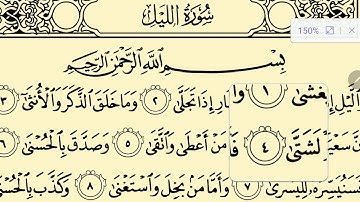 سُورَةُ اللَّيْلِ
150%
1
بِسْمِ اللَّهِ الرَّحْمَٰنِ الرَّحِيمِ
وَالَّيْلِ إِذَا يَغْشَىٰ ١ وَالنَّهَارِ إِذَا تَجَلَّىٰ ٢ وَمَا خَلَقَ الذَّكَرَ وَالْأُنثَىٰ ٣
سَعْيَكُمْ لَشَتَّىٰ ٤ فَأَمَّا مَنْ أَعْطَىٰ وَاتَّقَىٰ ٥ وَصَدَّقَ بِالْحُسْنَىٰ ٦
فَسَنُيَسِّرُهُ لِلْيُسْرَىٰ ٧ وَأَمَّا مَنْ بَخِلَ وَاسْتَغْنَىٰ ٨ وَكَذَّبَ بِالْحُسْنَىٰ